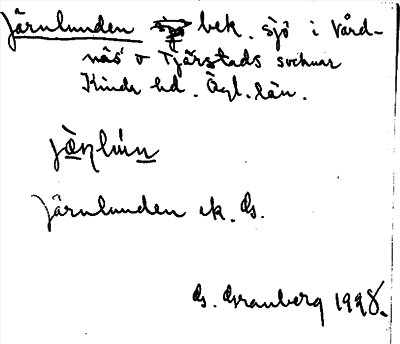 Järnlunden bek. sjö i Vård-
näs o Tjärstads socknar
Kinda hd. Ögl. län.
Järnlunden ek. Ds.
G. Granberg 1998.